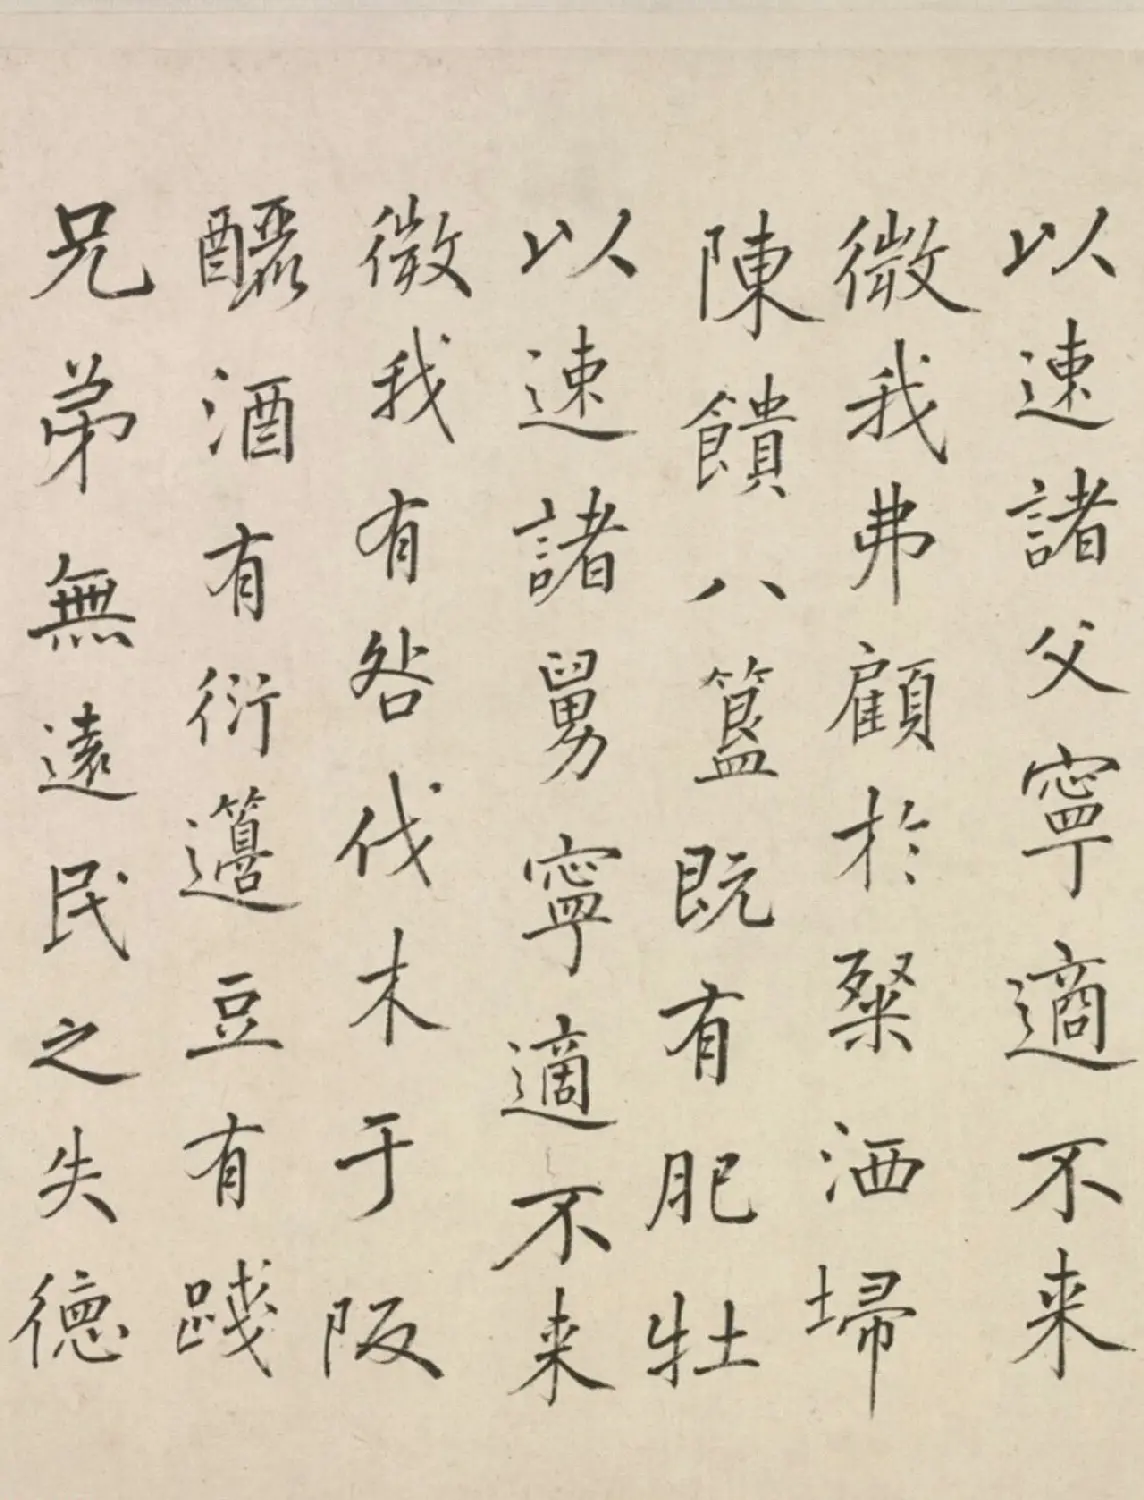 以速諸父寧適不来
微我弗顧於粲洒埽
陳饋八簋既有肥牡
以速諸舅寧適不来
微我有咎伐木于阪
釃酒有衍籩豆有踐
兄弟無遠民之失德